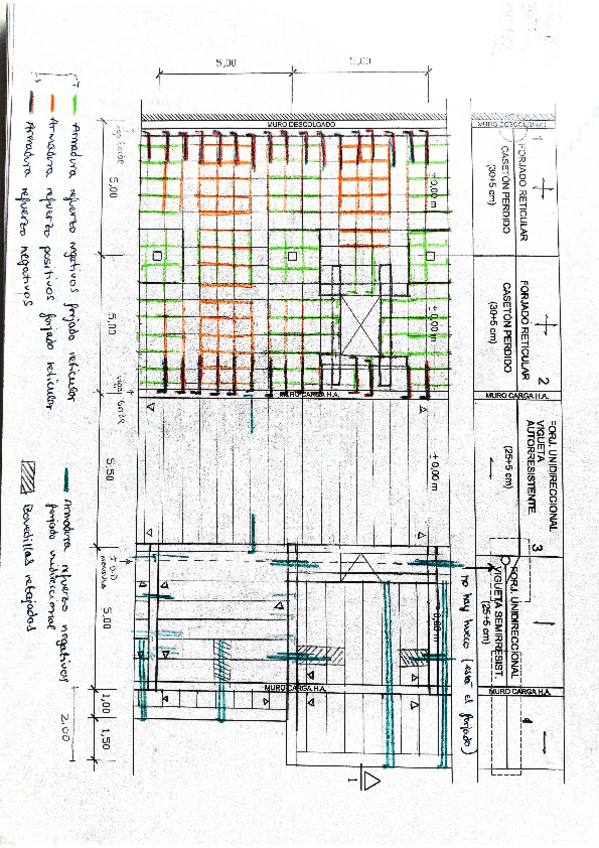 5,00
5,00
MURO DESCOLGADO
MURO DESCOLGADO
FORJADO RETICULAR
CASETÓN PERDIDO
(30+5 cm)
1
± 0,00 m
5,00
FORJADO RETICULAR
CASETÓN PERDIDO
(30+5 cm)
2
± 0,00 m
5,00
MURO CARGA H.A.
MURO CARGA H.A.
FORJ. UNIDIRECCIONAL
VIGUETA
AUTORRESISTENTE
(25+5 cm)
3
± 0,00 m
5,50
FORJ. UNIDIRECCIONAL
VIGUETA SEMIRRESIST.
(25+5 cm)
4
5,00
no hay hueco (está el forjado)
MURO CARGA H.A.
MURO CARGA H.A.
1,00
1,50
2.00
1
Armadura refuerzo negativos forjado reticular
Armadura refuerzo positivos forjado reticular
Armadura refuerzo negativos
Armadura refuerzo negativos
forjado unidireccional
Bovedillas rebajadas